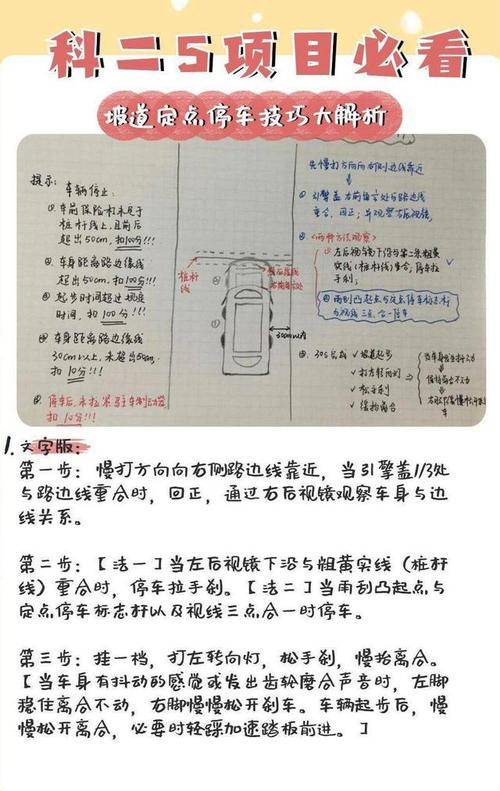 科二5项目必看
坡道定点停车技巧大解析
提示:
车辆停止:
①车前保险杠未见于
桩杆线上,且前后
超出50cm,扣100分!!!
②车身距离路边缘线
超出50cm,扣100分!!!
③起步时间超过规定
时间,扣100分!!!
④车身距离路边缘线
30cm以上,未超出50cm,
扣10分!!!
停车后,未拉紧驻车制动器
扣10分!!!
桩杆
线
30cm以内
先慢打方向向右侧边线靠近
引擎盖右前
与路边线
重合,回正,并观察右后视镜,
<两种方法观察>
左后视镜下沿与第二条粗黄
实线(桩杆线)重合,停车拉
手刹,
雨刮凸起点与定点停车标志杆
与视线三点合一停车
30S完成
坡道起步
打左转向灯
松手刹
缓抬离合
1.文字版:
第一步:慢打方向向右侧路边线靠近,当引擎盖1/3处
与路边线重合时,回正,通过右后视镜观察车身与边
线关系。
第二步:【法一】当左后视镜下沿与粗黄实线(桩杆
线)重合时,停车拉手刹。【法二】当雨刮凸起点与
定点停车标志杆以及视线三点合一时停车。
第三步:挂一档,打左转向灯,松手刹,慢抬离合。
【当车身有抖动的感觉或发出齿轮磨合声音时,左脚
稳住离合不动,右脚慢慢松开刹车。车辆起步后,慢
慢松开离合,必要时轻踩加速踏板前进。】